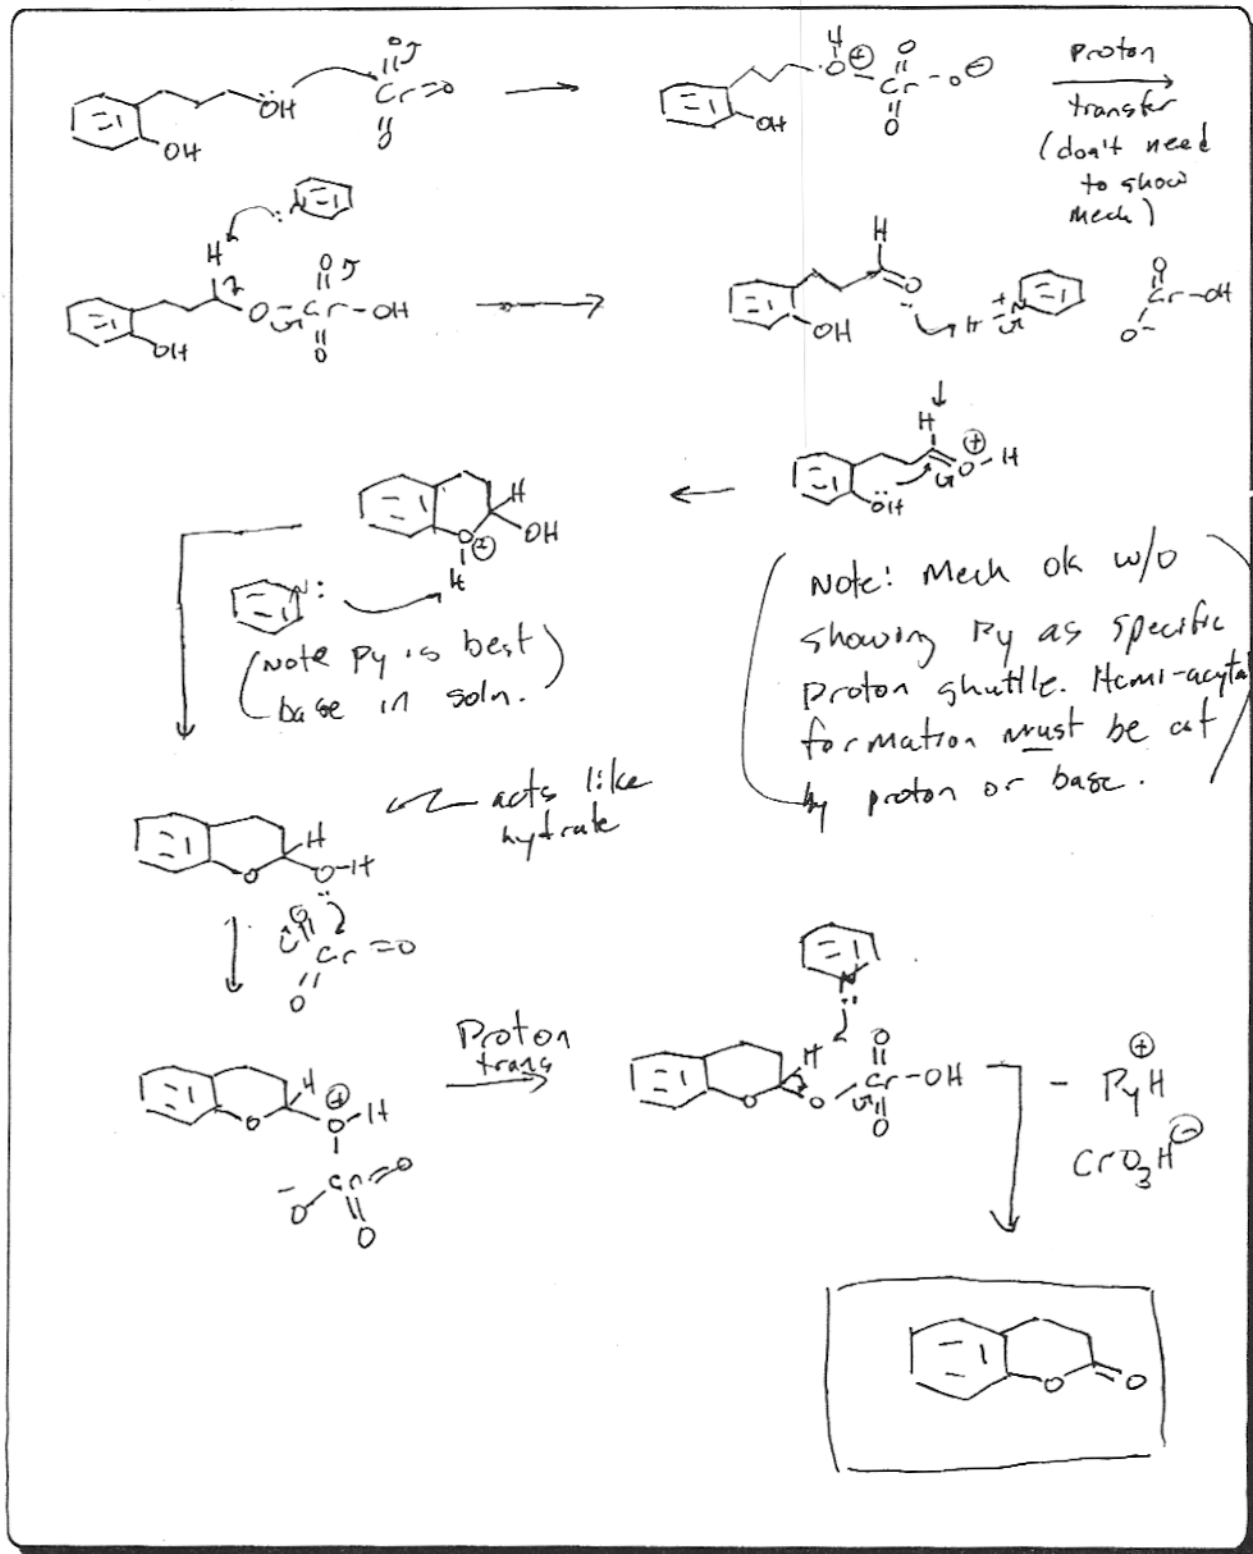 ÖH
OH
O
Cr=O
O
H
O⊕
Cr
O
O
O⊖
OH
Proton
transfer
(don't need
to show
mech)
H
:N
O
O-Cr-OH
O
OH
H
O
OH
H-N
+
O
Cr-OH
O-
H
⊕
O-H
ÖH
H
OH
O⊕
H
N:
(Note Py is best
base in soln.)
(Note: Mech ok w/o
showing Py as specific
proton shuttle. Hemi-acytal
formation must be cat
by proton or base.)
acts like
hydrate
H
O
O-H
O
Cr=O
O
Proton
trans
H
⊕
O
O-H
Cr=O
-O
O
N
H
O
O
O
Cr-OH
O
-
⊕
PyH
CrO3H⊖
O
O